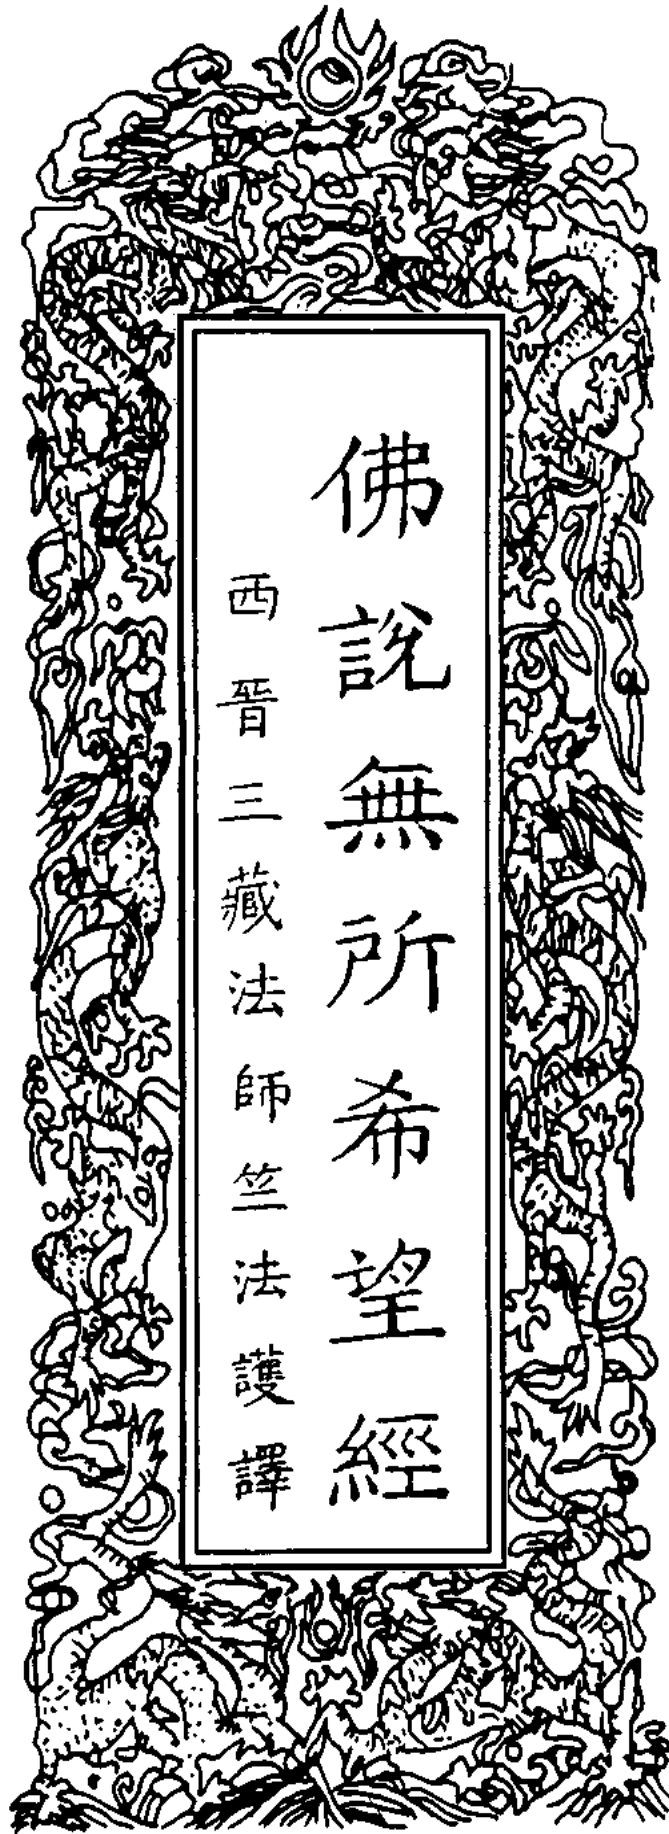 佛說無所希望經
西晉三藏法師竺法護譯